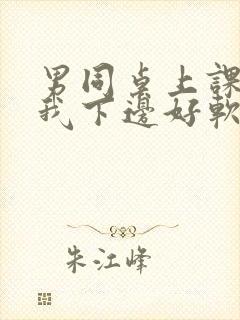 男同桌上課
我下邊好軟
朱江峰